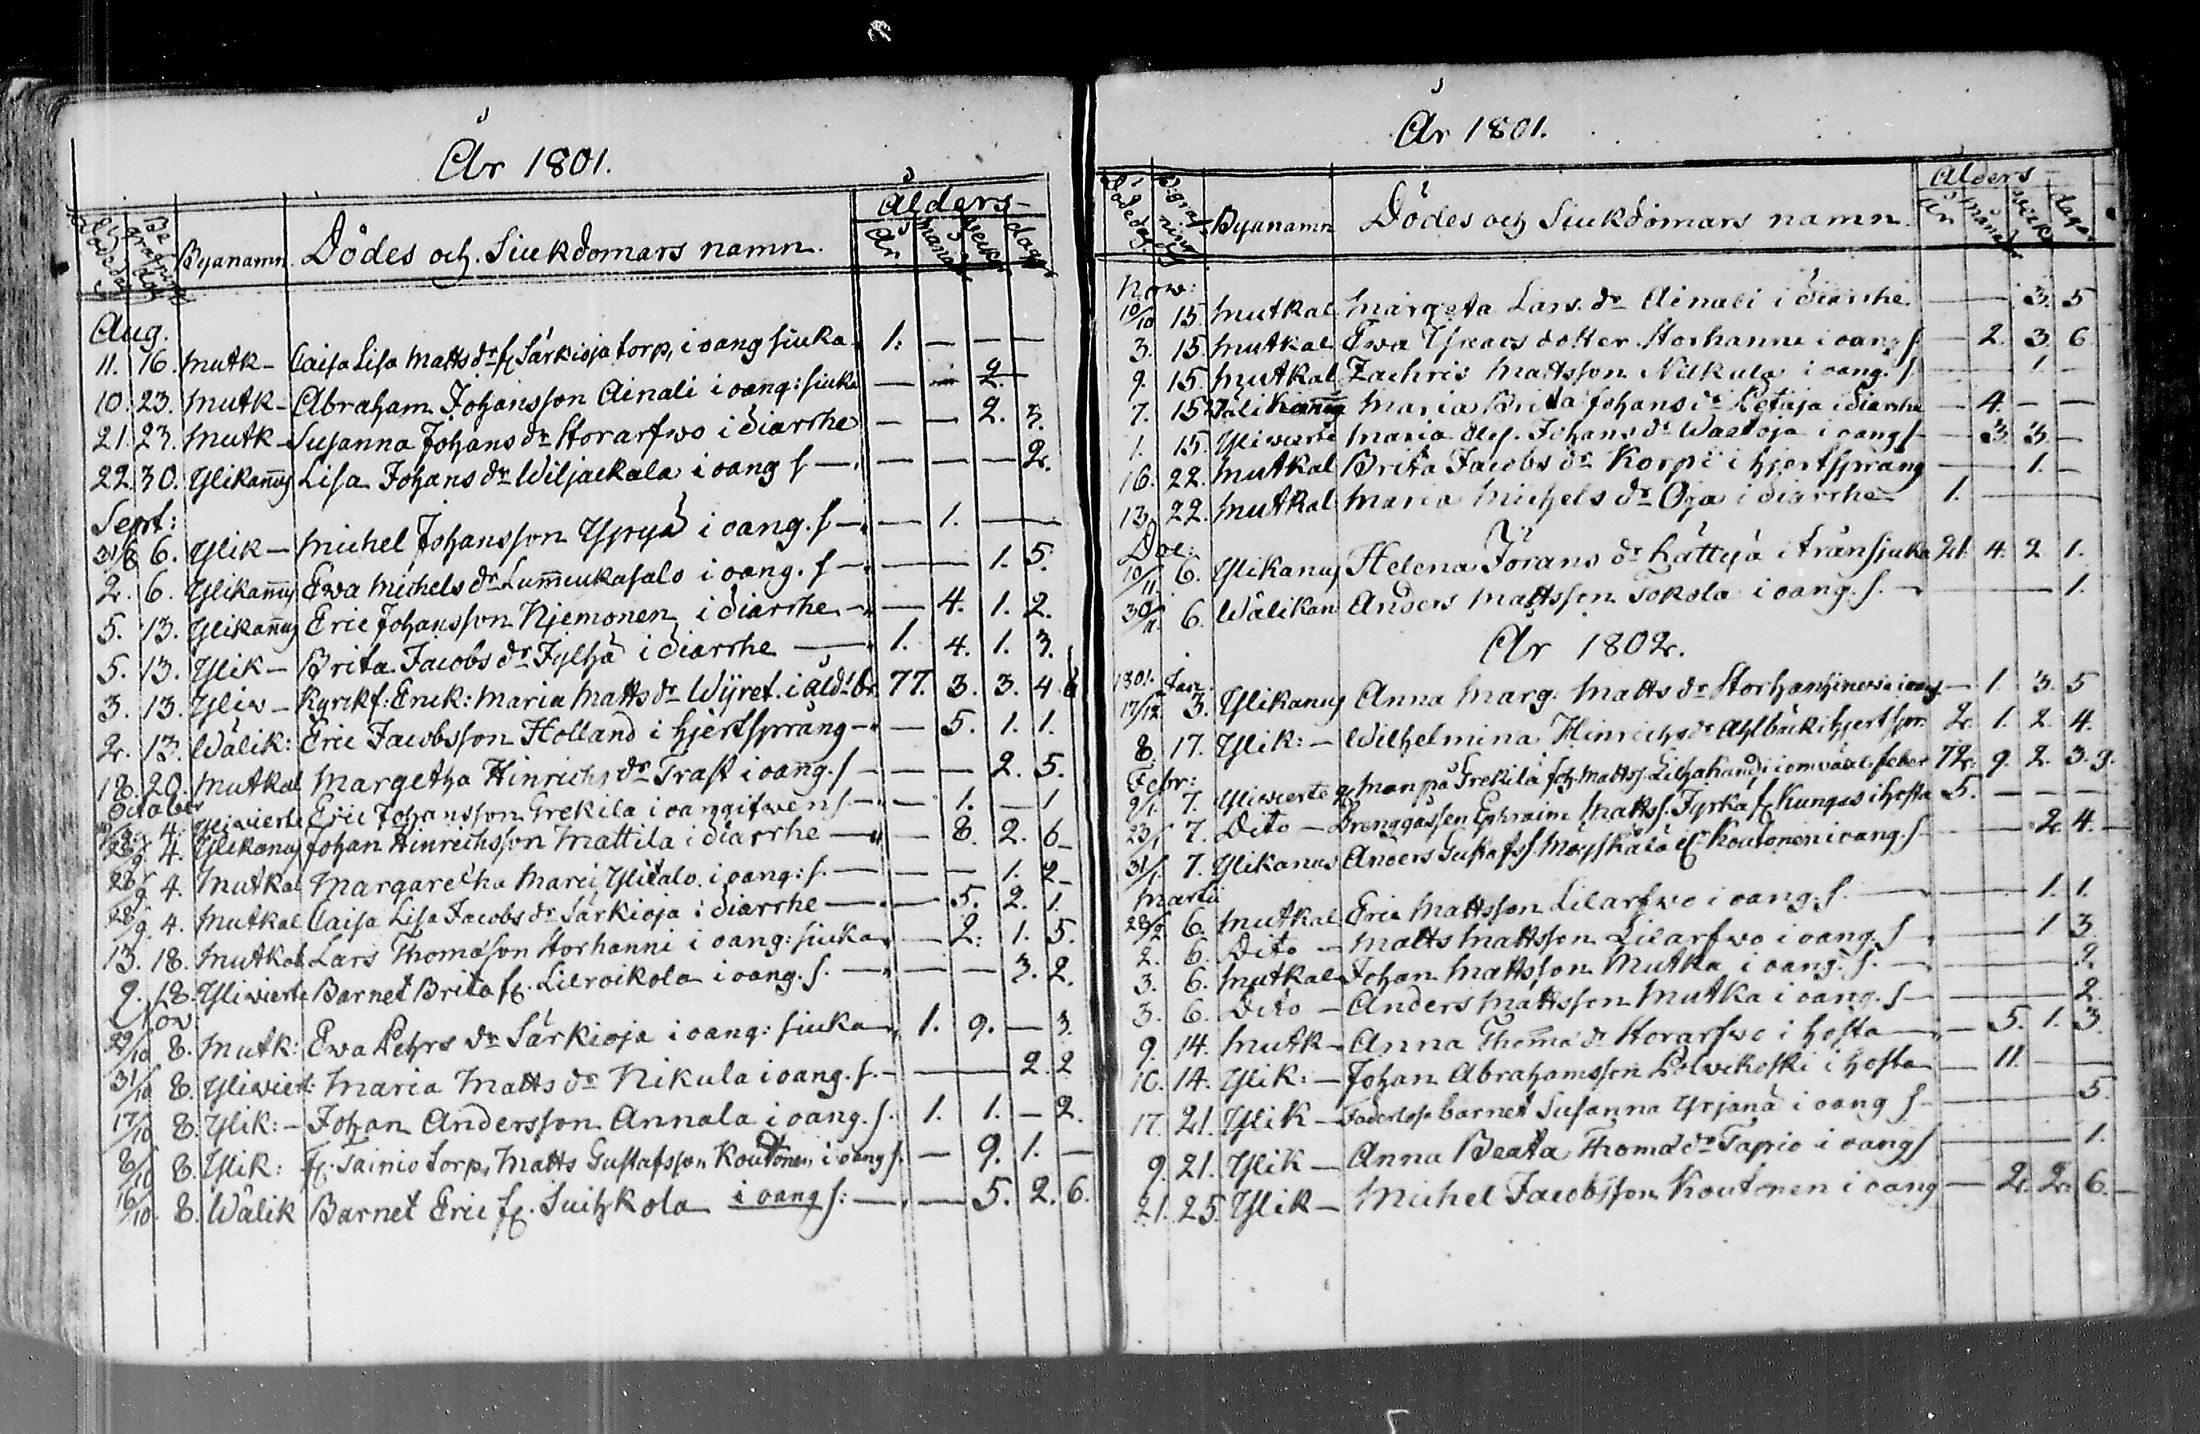 År 1801.
Byanamn Dödes och Siukdomars namn. Ålders
År månad veckor dagar
Aug.
11. 16. Mutk- Caisa Lisa Matts dr fr. Särkioja torp, i oang siuka 1. — — —
10. 23. Mutk- Abraham Johansson Ainali i oang: siuka — — 2. —
21. 23. Mutk- Susanna Johans dr Storarfwo i diarrhe — — 2. 3.
22. 30. Ylikañus Lisa Johans dr Wiljaekala i oang s — — — — 2.
Sept:
31/8 6. Ylik— Michel Johansson Ypyä i oang. s — — 1. — —
2. 6. Ylikañus Ewa Michels dr Lum̄eukasalo i oang. s — — — 1. 5.
5. 13. Ylikañus Eric Johansson Njemonen i diarrhe — — 4. 1. 2.
5. 13. Ylik— Brita Jacobs dr Jylhä i diarrhe — 1. 4. 1. 3.
3. 13. Yliv— Kyrkf: Enck: Maria Matts dr Wyret. i åld: 77. 3. 3. 4
2. 13. Wälik: Eric Jacobsson Holland i hjertsprång — — 5. 1. 1.
18. 20. Mutkal Margetha Hinrichs dr Trast i oang. s — — — 2. 5.
October
4. Yliwierte Eric Johansson Grekila i oangifwen s. — — 1. — 1
28/9 4. Ylikanus Johan Hinrichsson Mattila i diarrhe — — 8. 2. 6
28/9. 4. Mutkal Margaretha Marci Ylitalo i oang: s. — — — 1. 2
28/9. 4. Mutkal Caisa Lisa Jacobs dr Särkioja i diarrhe — — 5. 2. 1.
13. 18. Mutkal Lars Thomasson Storhanni i oang: siuka — 2. 1. 5.
9. 18. Yliwierte Barnet Brita fr. Lilroikola i oang. s. — — — 3. 2.
Nov
29/10 8. Mutk: Ewa Pehrs dr Särkioja i oang: siuka 1. 9. — 3.
31/10 8. Yliwiert: Maria Matts dr Nikula i oang. s. — — — 2. 2
17/10 8. Ylik:— Johan Andersson Annala i oang. s. 1. 1. — 2.
8/10 8. Ylik: fr. Tainio torp, Matts Gustafsson Koutonen i oang s. — 9. 1. —
16/10. 8. Wälik Barnet Eric fr. Suihkola i oang s: — — 5. 2. 6.
År 1801.
Byanamn Dödes och Siukdomars namn Ålders
år månad veckor dagar
Nov:
10/10 15. Mutkal Margeta Lars. dr Ainali i diarrhe — — 3. 5
3. 15. Mutkal Ewa Ysacs dotter Storhanni i oang s — 2. 3. 6
9. 15. Mutkal Zachris Mattsson Nikula i oang. s — — 1. —
7. 15. Wälikañus Maria Brita Johans dr Petäja i diarrhe — 4. — —
1. 15. Yliwierte Maria Johans dr Wastoja i oang s — 3. 3. —
16. 22. Mutkal Brita Jacobs dr Korpi i hjertsprång — — 1. —
13. 22. Mutkal Maria Michels dr Oja i diarrhe 1. — — —
10/11 6. Ylikanus Helena Jörans dr Lättyä i trånsjuka 21. 4. 2 1.
30/11. 6. Wälikan Anders Mattsson Tokola i oang. s. — — — 1.
År 1802.
1801. Jan:
17/12 3. Ylikanus Anna Marg: Matts dr i oang — 1. 3. 5
8. 17. Ylik:— Wilhelmina Hinrichs dr Ahlbäck i hjertspr. 2. 1. 2. 4.
Febr:
9/1. 7. Yliwierte g. Man på Grekilä Joh. Matts s. Liljahandi i feber 72. 9. 2. 3.
23/1 7. Dito— Drenggåssen Ephraim Matts s. Tyrka fr Kungas i hosta 5. — — —
31/1 7. Ylikanus Anders Gustafs s. Koutonen i oang. s — — 2. 4.
Martii
28/2 6. Mutkal Eric Mattsson Lilarfwo i oang: s. — — 1. 1.
2. 6. Dito— Matts Mattsson Lilarfwo i oang. s — — 1 3
3. 6. Mutkal Johan Mattsson Mutka i oang: s. — — — 2.
3. 6. Dito— Anders Mattsson Mutka i oang. s — — — 2.
9. 14. Mutk— Anna Thoma dr Storarfwo i hosta — 5. 1. 3.
10. 14. Ylik:— Johan Abrahamsson Polwikoski i hosta — 11. — —
17. 21. Ylik— Faderlösa barnet Susanna Yrjänä i oang s — — — 5.
9. 21. Ylik— Anna Beata Thoma dr Tapio i oang s — — — 1.
21. 25. Ylik— Michel Jacobsson Koutonen i oang — 2. 2. 6.